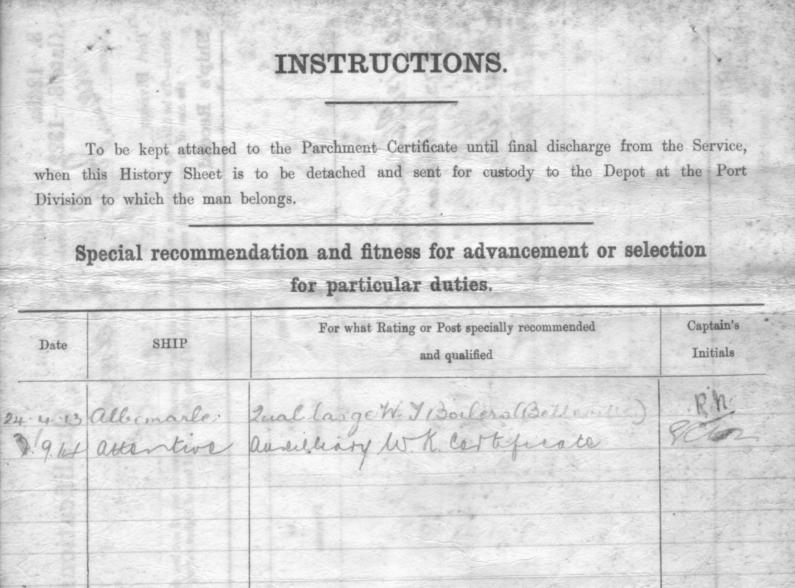 INSTRUCTIONS.
To be kept attached to the Parchment Certificate until final discharge from the Service,
when this History Sheet is to be detached and sent for custody to the Depot at the Port
Division to which the man belongs.
Special recommendation and fitness for advancement or selection
for particular duties.
Date SHIP For what Rating or Post specially recommended
and qualified Captain's
Initials
24.4.13 Albemarle. Qual large W T Boilers (Belleville) R.N.
9.14 Attentive Auxilliary W. K. Certificate